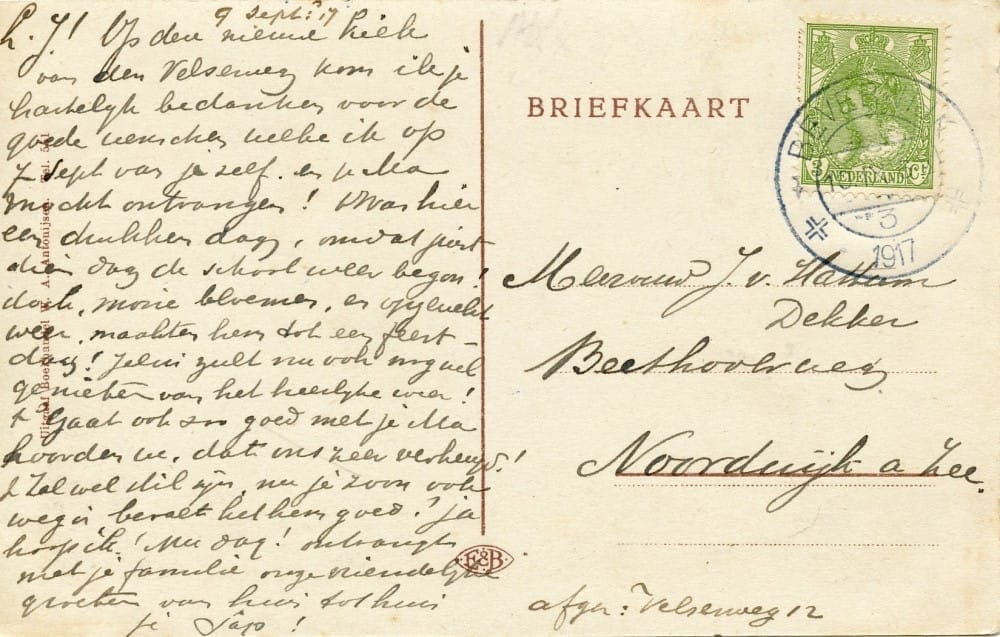 9 Sept: 17
L. J! Op den nieuwe kiek
van den Velserweg kom ik je
hartelyk bedanken voor de
goede wenschen welke ik op
7 Sept van je zelf en je Ma
mocht ontvangen! 't Was hier
een drukken dag, omdat juist
dien dag de school weer begon!
doch, mooie bloemen, en opgewekt
weer, maakten hem tot een feest-
dag! Jelui zult nu ook nog wel
genieten van het heerlijke weer!
't Gaat ook zoo goed met je Ma
hoorden we, dat ons zeer verheugd!
't Zal wel stil zijn, nu je zoon ook
weg is, bevalt het hem goed? ja
hoop ik! Nu dag! ontvangt
met je familie onze vriendelyke
groeten van huis tot huis
je Jaap!
Uitgaaf Boekhandel W. A. Antonijsen
BRIEFKAART
3 Ct
NEDERLAND
BEVERWIJK
3
1917
Mevrouw J. v. Hattum
Dekker
Beethovenweg
Noordwijk a Zee.
E&B
afgz: Velserweg 12